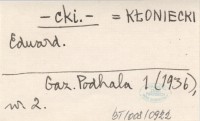 -cki.- = KŁONIECKI
Edward.
Gaz. Podhala 1 (1936),
nr. 2.
BT/003/0922